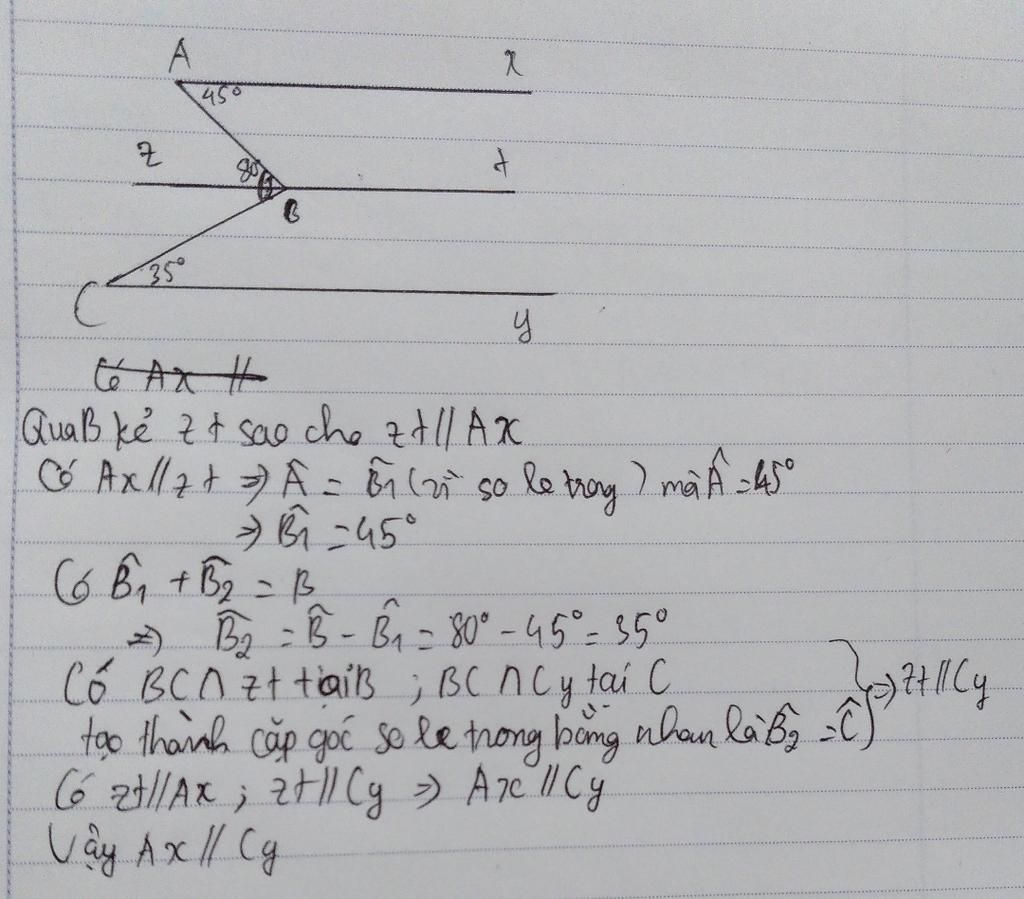 A x
45°
z 80° t
B
35°
C y
Có Ax //
Qua B kẻ zt sao cho zt // Ax
Có Ax // zt ⇒ Â = B̂1 (vì so le trong) mà Â = 45°
⇒ B̂1 = 45°
Có B̂1 + B̂2 = B
⇒ B̂2 = B̂ - B̂1 = 80° - 45° = 35°
Có BC ∩ zt tại B ; BC ∩ Cy tại C
tạo thành cặp góc so le trong bằng nhau là B̂2 = Ĉ ⇒ zt // Cy
Có zt // Ax ; zt // Cy ⇒ Ax // Cy
Vậy Ax // Cy